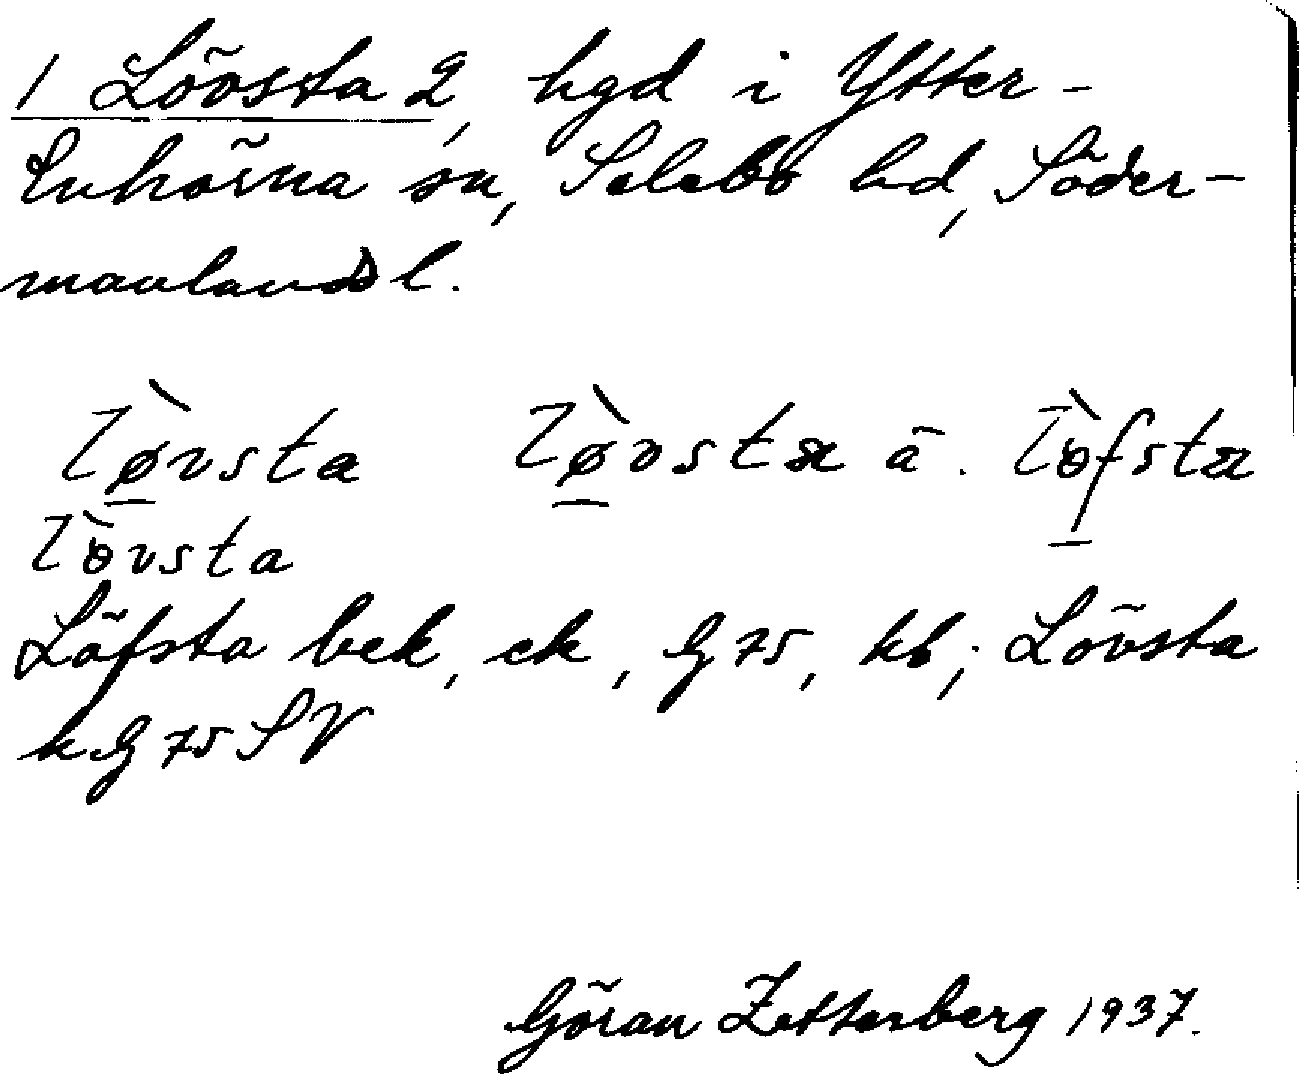 1 Lövsta 2, hgd i Ytter-
Enhörna sn, Selebo hd, Söder-
manlands l.
lø̀vsta lø̀vstæ ä. lö̀fstæ
lö̀vsta
Löfsta bek, ek, G 75, kb; Lövsta
k G 75 SV
Göran Zetterberg 1937.